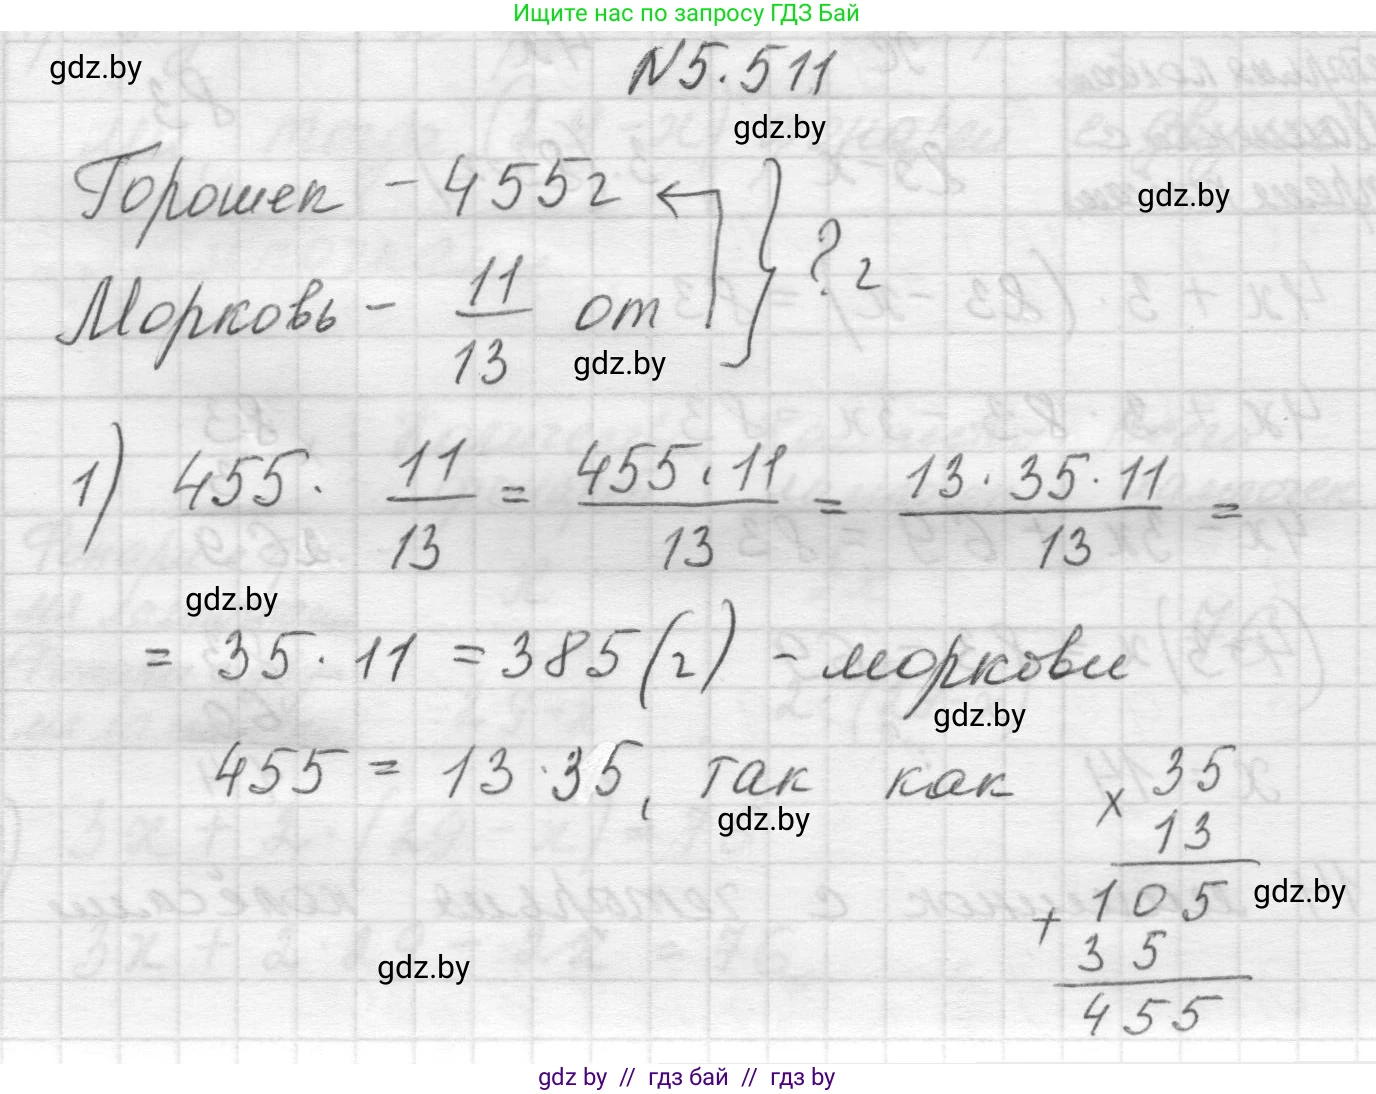 Ищите нас по запросу ГДЗ Бай
gdz.by
N5.511
gdz.by
Горошек - 455г
gdz.by
} ? г
Морковь - 11/13 от
gdz.by
1) 455 · 11/13 = 455 · 11/13 = 13 · 35 · 11/13 =
gdz.by
= 35 · 11 = 385 (г) - моркови
gdz.by
455 = 13 · 35, так как
gdz.by
× 35
13
105
gdz.by
+ 35
gdz.by
455
gdz by // гдз бай // гдз by